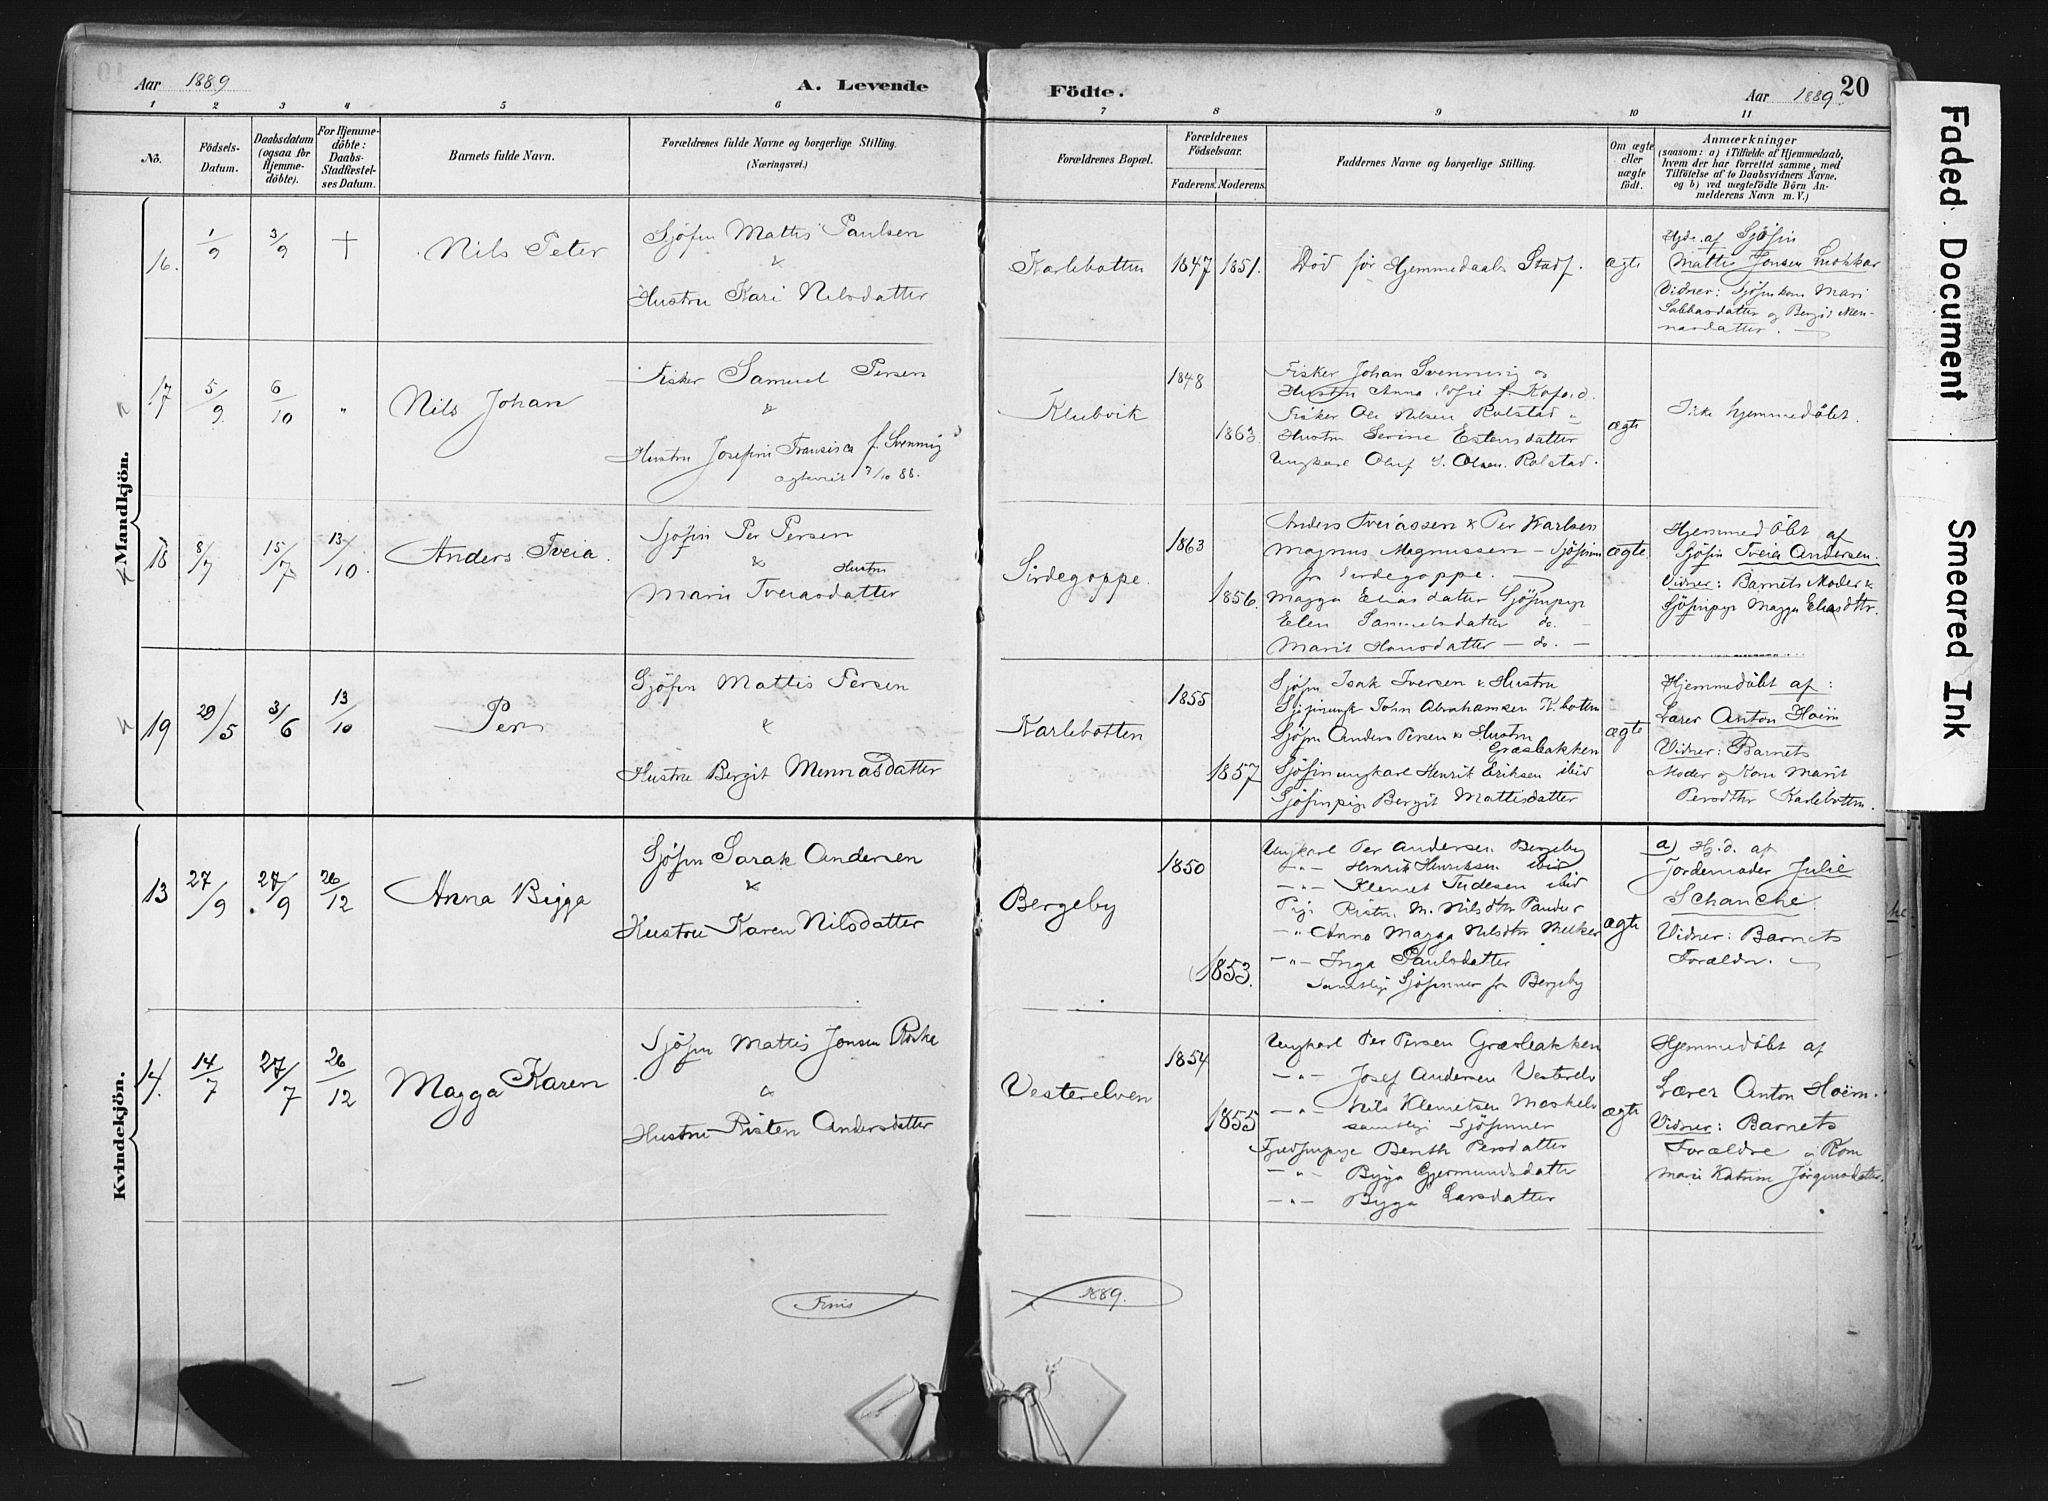 Aar 1889
A. Levende
Födte.
Aar 1889.
20
1 2 3 4 5 6 7 8 9 10 11
No.
Födsels-
Datum.
Daabsdatum
(ogsaa for
Hjemme-
döbte).
For Hjemme-
döbte:
Daabs-
Stadfæstel-
ses Datum.
Barnets fulde Navn.
Forældrenes fulde Navne og borgerlige Stilling.
(Næringsvei.)
Forældrenes Bopæl.
Forældrenes
Födselsaar.
Faderens. Moderens.
Faddernes Navne og borgerlige Stilling.
Om ægte
eller
uægte
födt.
Anmærkninger
(saasom: a) i Tilfælde af Hjemmedaab,
hvem der har forrettet samme, med
Tilföielse af to Daabsvidners Navne,
og b) ved uægtefödte Börn An-
melderens Navn m. V.)
Mandkjön.
16. 1/9 3/9 † Nils Peter
Sjöfin Mattis Paulsen
&
Hustru Kari Nilsdatter
Karlebotten 1847 1851.
Död för Hjemmedaabs Stadf.
ægte
Hjdr. af Sjöfin
Mattis Jonsen
Vidner: Sjöfinkone Mari
Sabbasdatter og Bergit Men-
nasdatter.
17 5/9 6/10 " Nils Johan
Fisker Samuel Persen
&
Hustru Josefine Fransisca f. Svenning
ægteviet 7/10 88.
Klubvik 1848 1863.
Fisker Johan Svenning og
Hustru Anna Sofie f. Kofoed.
Fisker Ole Nilsen Rolstad
Hustru Serine Estensdatter
Ungkarl Oluf S. Olsen Rolstad.
ægte
Ikke hjemmedöbt.
18 8/7 15/7 13/10. Anders Tveia.
Sjöfin Per Persen
& Hustru
Marit Tveiasdatter
Sirdegoppe. 1863 1856.
Anders Tveiassen & Per Karlsen
Magnus Magnussen – Sjöfinner
fra Sirdegoppe.
Magga Eliasdatter Sjöfinpige
Elen Samuelsdatter do. –
Marit Hansdatter – do. –
ægte
Hjemmedöbt af
Sjöfin Tveia Andersen.
Vidner: Barnets Moder &
Sjöfinpige Magga Eliasdtr.
19 29/5 3/6 13/10 Per
Sjöfin Mattis Persen
&
Hustru Bergit Mennasdatter
Karlebotten 1855 1857
Sjöfin Isak Iversen & Hustru
John Abrahamsen K.botten
Sjöfin Anders Persen & Hustru
Græsbakken
Sjöfinungkarl Henrik Eriksen ibid
Sjöfinpige Bergit Mattisdatter
ægte
Hjemmedöbt af:
Lærer Anton Hoëm
Vidner: Barnets
Moder og Kone Marit
Persdtr Karlebotten.
Kvindekjön.
13 27/9 27/9 26/12 Anna Bigga
Sjöfin Sarak Andersen
&
Hustru Karen Nilsdatter
Bergeby 1850 1853.
Ungkarl Per Andersen Bergeby
– " – Henrik Henriksen ibid
– " – Klemet Tudesen ibid
Pige Risten M. Nilsdtr
– " Anna Magga Nilsdtr
– " – Inga Paulsdatter
Samtlige Sjöfinner fra Bergeby
ægte
a) Hj.d. af
Jordemoder Julie
Schanche.
Vidner: Barnets
Forældre.
14. 14/7 27/7 26/12 Magga Karen
Sjöfin Mattis Jonsen
&
Hustru Risten Andersdatter
Vesterelven 1854 1855
Ungkarl Per Persen Græsbakken
– " – Josef Andersen Vesterelv
– " – Nils Klemetsen Meskelv
samtlige Sjöfinner
Berith Persdatter
– " – Bigga Gjermundsdatter
– " – Bigga Larsdatter
ægte
Hjemmedöbt af
Lærer Anton Hoëm.
Vidner: Barnets
Forældre og Kone
Marie Katrine Jörgensdatter.
Finis 1889.
Faded Document
Smeared Ink